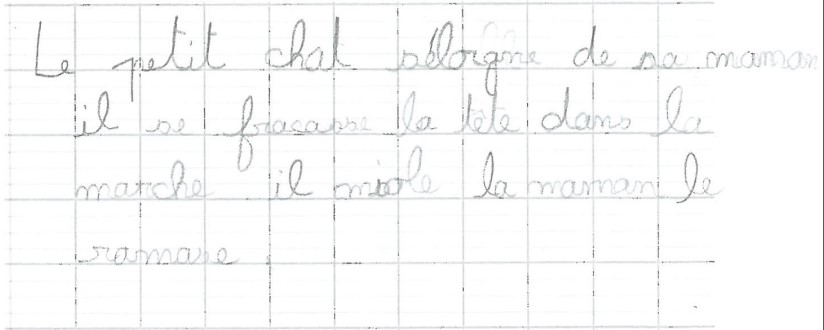 Le petit chat séloigne de sa maman
il se fracasse la tête dans la
marche il miole la maman le
ramase.